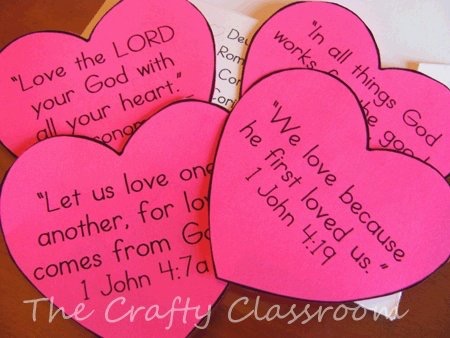 "Love the LORD
your God with
all your heart."
"In all things God
works for the good
"Let us love one
another, for lov
comes from Go
1 John 4:7a
"We love because
he first loved us."
1 John 4:19
The Crafty Classroom